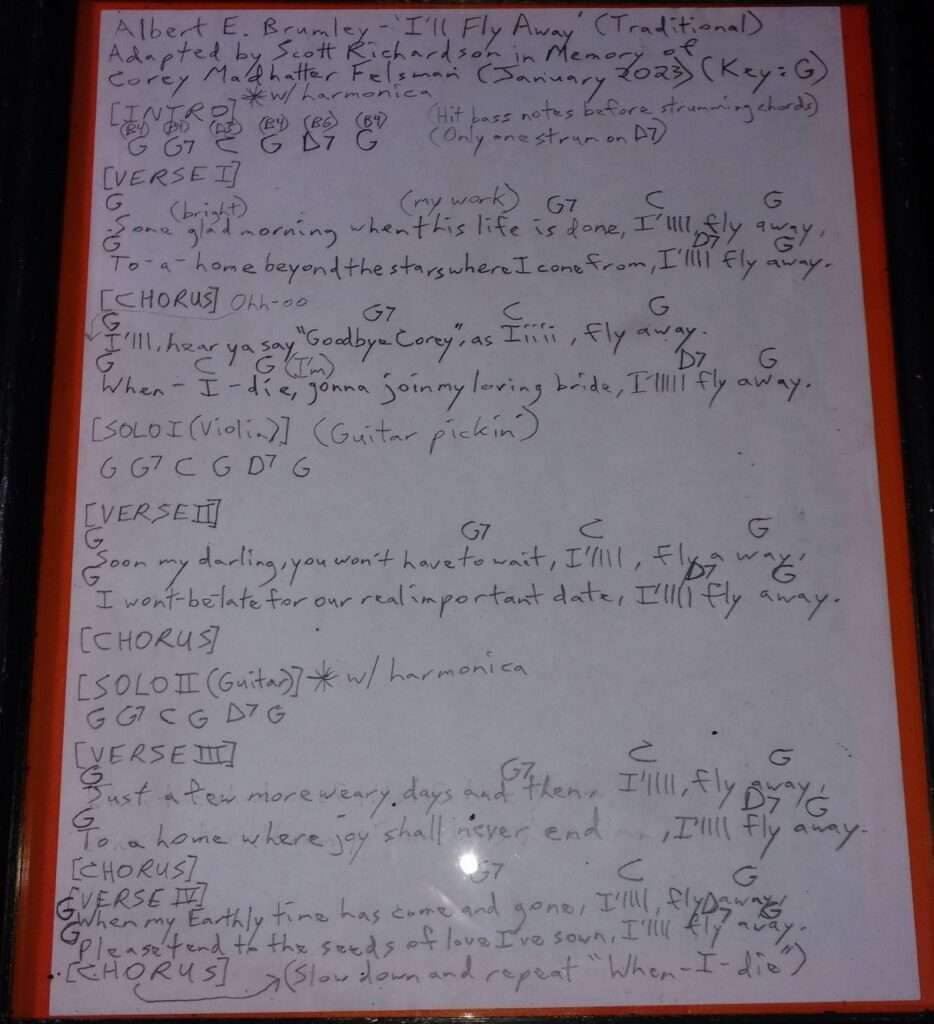 Albert E. Brumley - 'I'll Fly Away' (Traditional)
Adapted by Scott Richardson in Memory of
Corey Madhatter Felsman (January 2023) (Key: G)
[INTRO] * w/ harmonica
(Hit bass notes before strumming chords)
G G7 C G D7 G
(Only one strum on D7)
[VERSE I]
G (bright) (my work) G7 C G
Some glad morning when this life is done, I'llll, fly away,
G D7 G
To-a-home beyond the stars where I come from, I'llll fly away.
[CHORUS] Ohh-oo
G G7 C G
I'lll, hear ya say "Goodbye Corey", as Iiiii, fly away.
G C G (I'm) D7 G
When-I-die, gonna join my loving bride, I'lllll fly away.
[SOLO I (Violin)] (Guitar pickin')
G G7 C G D7 G
[VERSE II]
G G7 C G
Soon my darling, you won't have to wait, I'llll, fly away,
G D7 G
I won't be late for our real important date, I'llll fly away.
[CHORUS]
[SOLO II (Guitar)] * w/ harmonica
G G7 C G D7 G
[VERSE III]
G G7 C G
Just a few more weary days and then, I'llll, fly away,
G D7 G
To a home where joy shall never end, I'llll fly away.
[CHORUS]
[VERSE IV]
G G7 C G
When my Earthly time has come and gone, I'llll, fly away,
G D7 G
Please tend to the seeds of love I've sown, I'llll fly away.
[CHORUS] (Slow down and repeat "When-I-die")